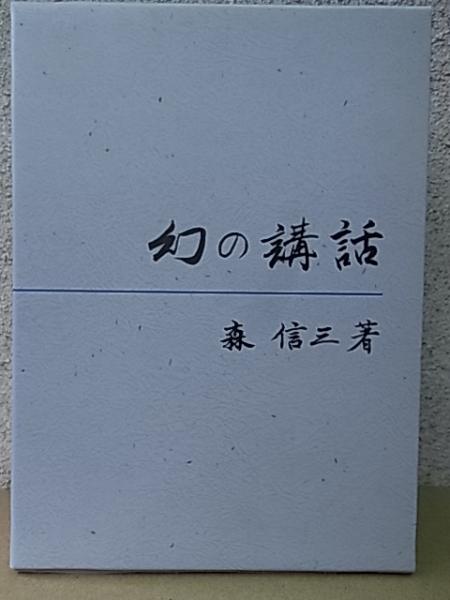 幻の講話
森信三著